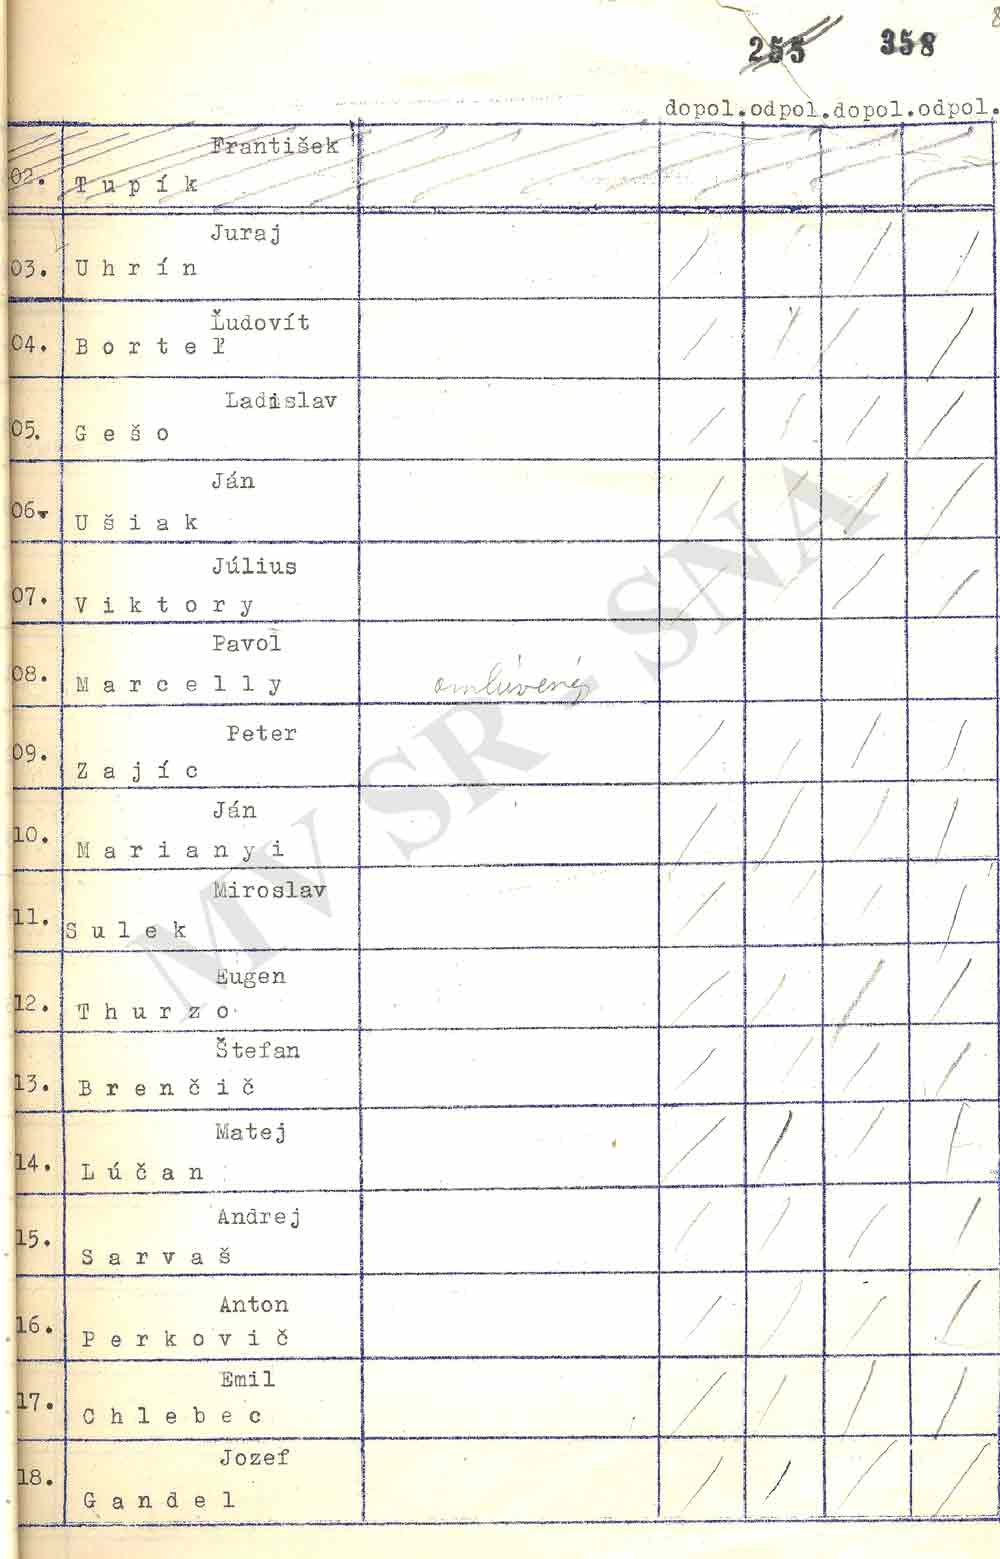 255 358
dopol. odpol. dopol. odpol.
František
02. Tupík
Juraj
03. Uhrín
Ľudovít
04. Borteľ
Ladislav
05. Gešo
Ján
06. Ušiak
Július
07. Viktory
Pavol
08. Marcelly omlúvený
Peter
09. Zajíc
Ján
10. Marianyi
Miroslav
11. Sulek
Eugen
12. Thurzo
Štefan
13. Brenčič
Matej
14. Lúčan
Andrej
15. Sarvaš
Anton
16. Perkovič
Emil
17. Chlebec
Jozef
18. Gandel
MV SR - SNA